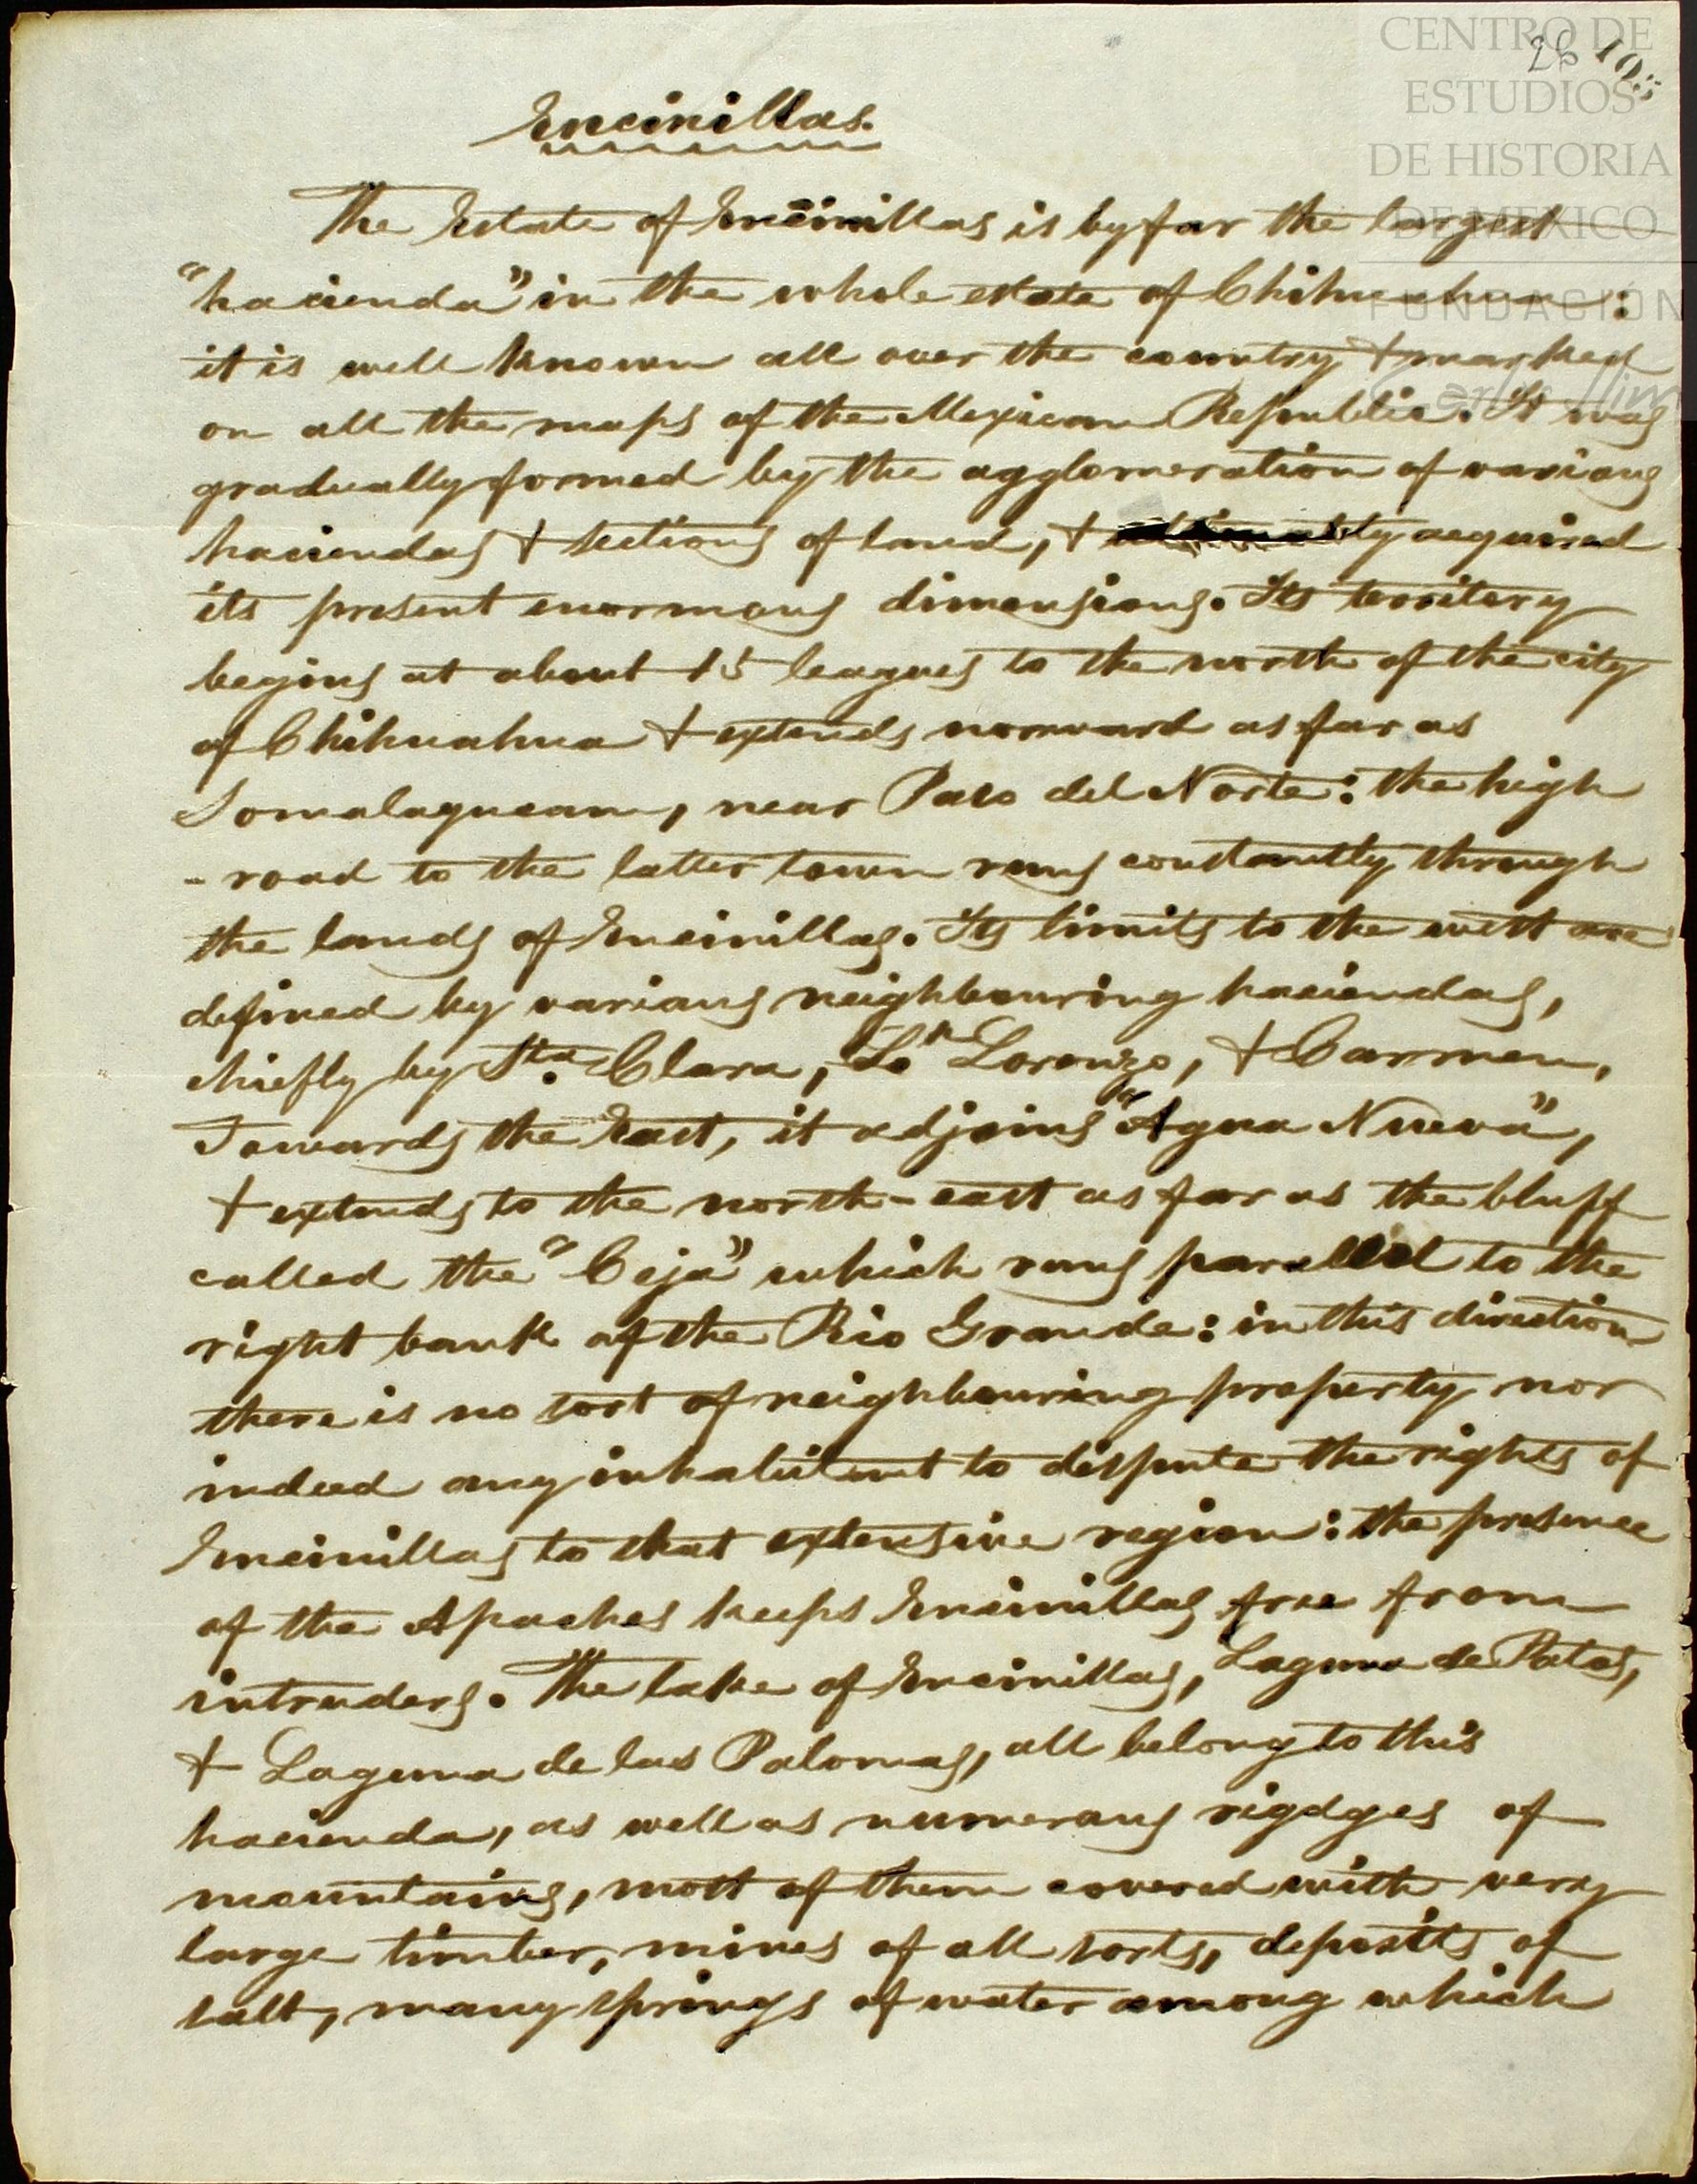 CENTRO DE
ESTUDIOS
DE HISTORIA
DE MEXICO
FUNDACION
Carlos Slim
26
Encinillas.
The Estate of Encinillas is by far the largest
"hacienda" in the whole estate of Chihuahua:
it is well known all over the country + marked
on all the maps of the Mexican Republic. It was
gradually formed by the agglomeration of various
haciendas + sections of land, + acquired
its present enormous dimensions. Its territory
begins at about 15 leagues to the north of the city
of Chihuahua + extends norward as far as
Somalaqueam, near Paso del Norte: the high
- road to the latter town runs constantly through
the lands of Encinillas. Its limits to the west are
defined by various neighbouring haciendas,
chiefly by Sta. Clara, Sn Lorenzo, + Carmen,
Towards the East, it adjoins "Agua Nueva",
+ extends to the north-east as far as the bluff
called the "Ceja" which runs parallel to the
right bank of the Rio Grande: in this direction
there is no sort of neighbouring property nor
indeed any inhabitant to dispute the rights of
Encinillas to that extensive region: the presence
of the Apaches keeps Encinillas free from
intruders. The lake of Encinillas, Laguna de Patos,
+ Laguna de las Palomas, all belong to this
hacienda, as well as numerous rigdges of
mountains, most of them covered with very
large timber, mines of all sorts, deposits of
salt, many springs of water among which